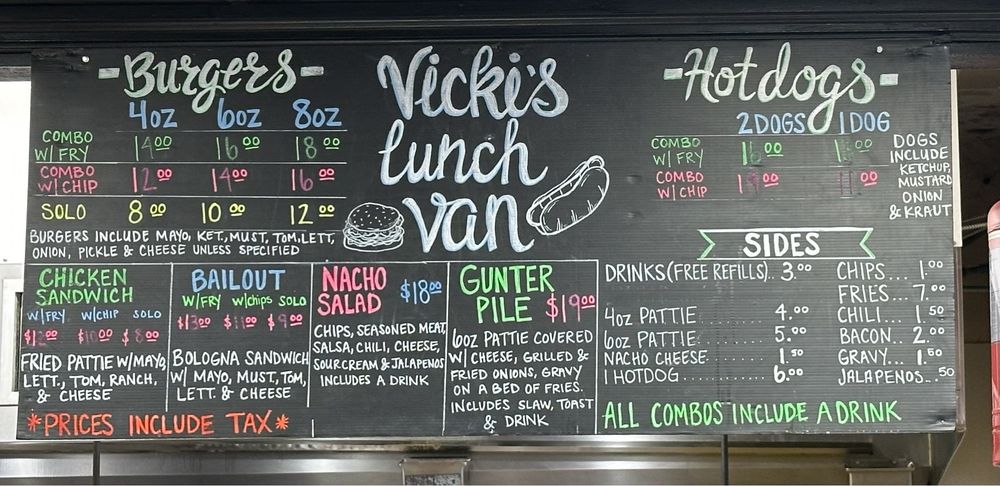 -Burgers-
4oz 6oz 8oz
COMBO W/ FRY 14.00 16.00 18.00
COMBO W/ CHIP 12.00 14.00 16.00
SOLO 8.00 10.00 12.00
BURGERS INCLUDE MAYO, KET., MUST, TOM, LETT,
ONION, PICKLE & CHEESE UNLESS SPECIFIED
Vicki's
lunch
van
-Hotdogs-
2 DOGS 1 DOG
COMBO W/ FRY
COMBO W/ CHIP
DOGS
INCLUDE
KETCHUP,
MUSTARD
ONION
& KRAUT
CHICKEN
SANDWICH
W/FRY W/CHIP SOLO
$10.00 $8.00
FRIED PATTIE W/MAYO,
LETT., TOM, RANCH,
& CHEESE
BAILOUT
W/FRY W/chips SOLO
$13.00 $11.00 $9.00
BOLOGNA SANDWICH
W/ MAYO, MUST, TOM,
LETT. & CHEESE
NACHO
SALAD $18.00
CHIPS, SEASONED MEAT,
SALSA, CHILI, CHEESE,
SOUR CREAM & JALAPENOS
INCLUDES A DRINK
GUNTER
PILE $19.00
6oz PATTIE COVERED
W/ CHEESE, GRILLED &
FRIED ONIONS, GRAVY
ON A BED OF FRIES.
INCLUDES SLAW, TOAST
& DRINK
SIDES
DRINKS (FREE REFILLS).. 3.00
4oz PATTIE........ 4.00
6oz PATTIE........ 5.00
NACHO CHEESE 1.50
1 HOTDOG............ 6.00
CHIPS... 1.00
FRIES... 7.00
CHILI... 1.50
BACON.. 2.00
GRAVY... 1.50
JALAPENOS...50
*PRICES INCLUDE TAX*
ALL COMBOS INCLUDE A DRINK